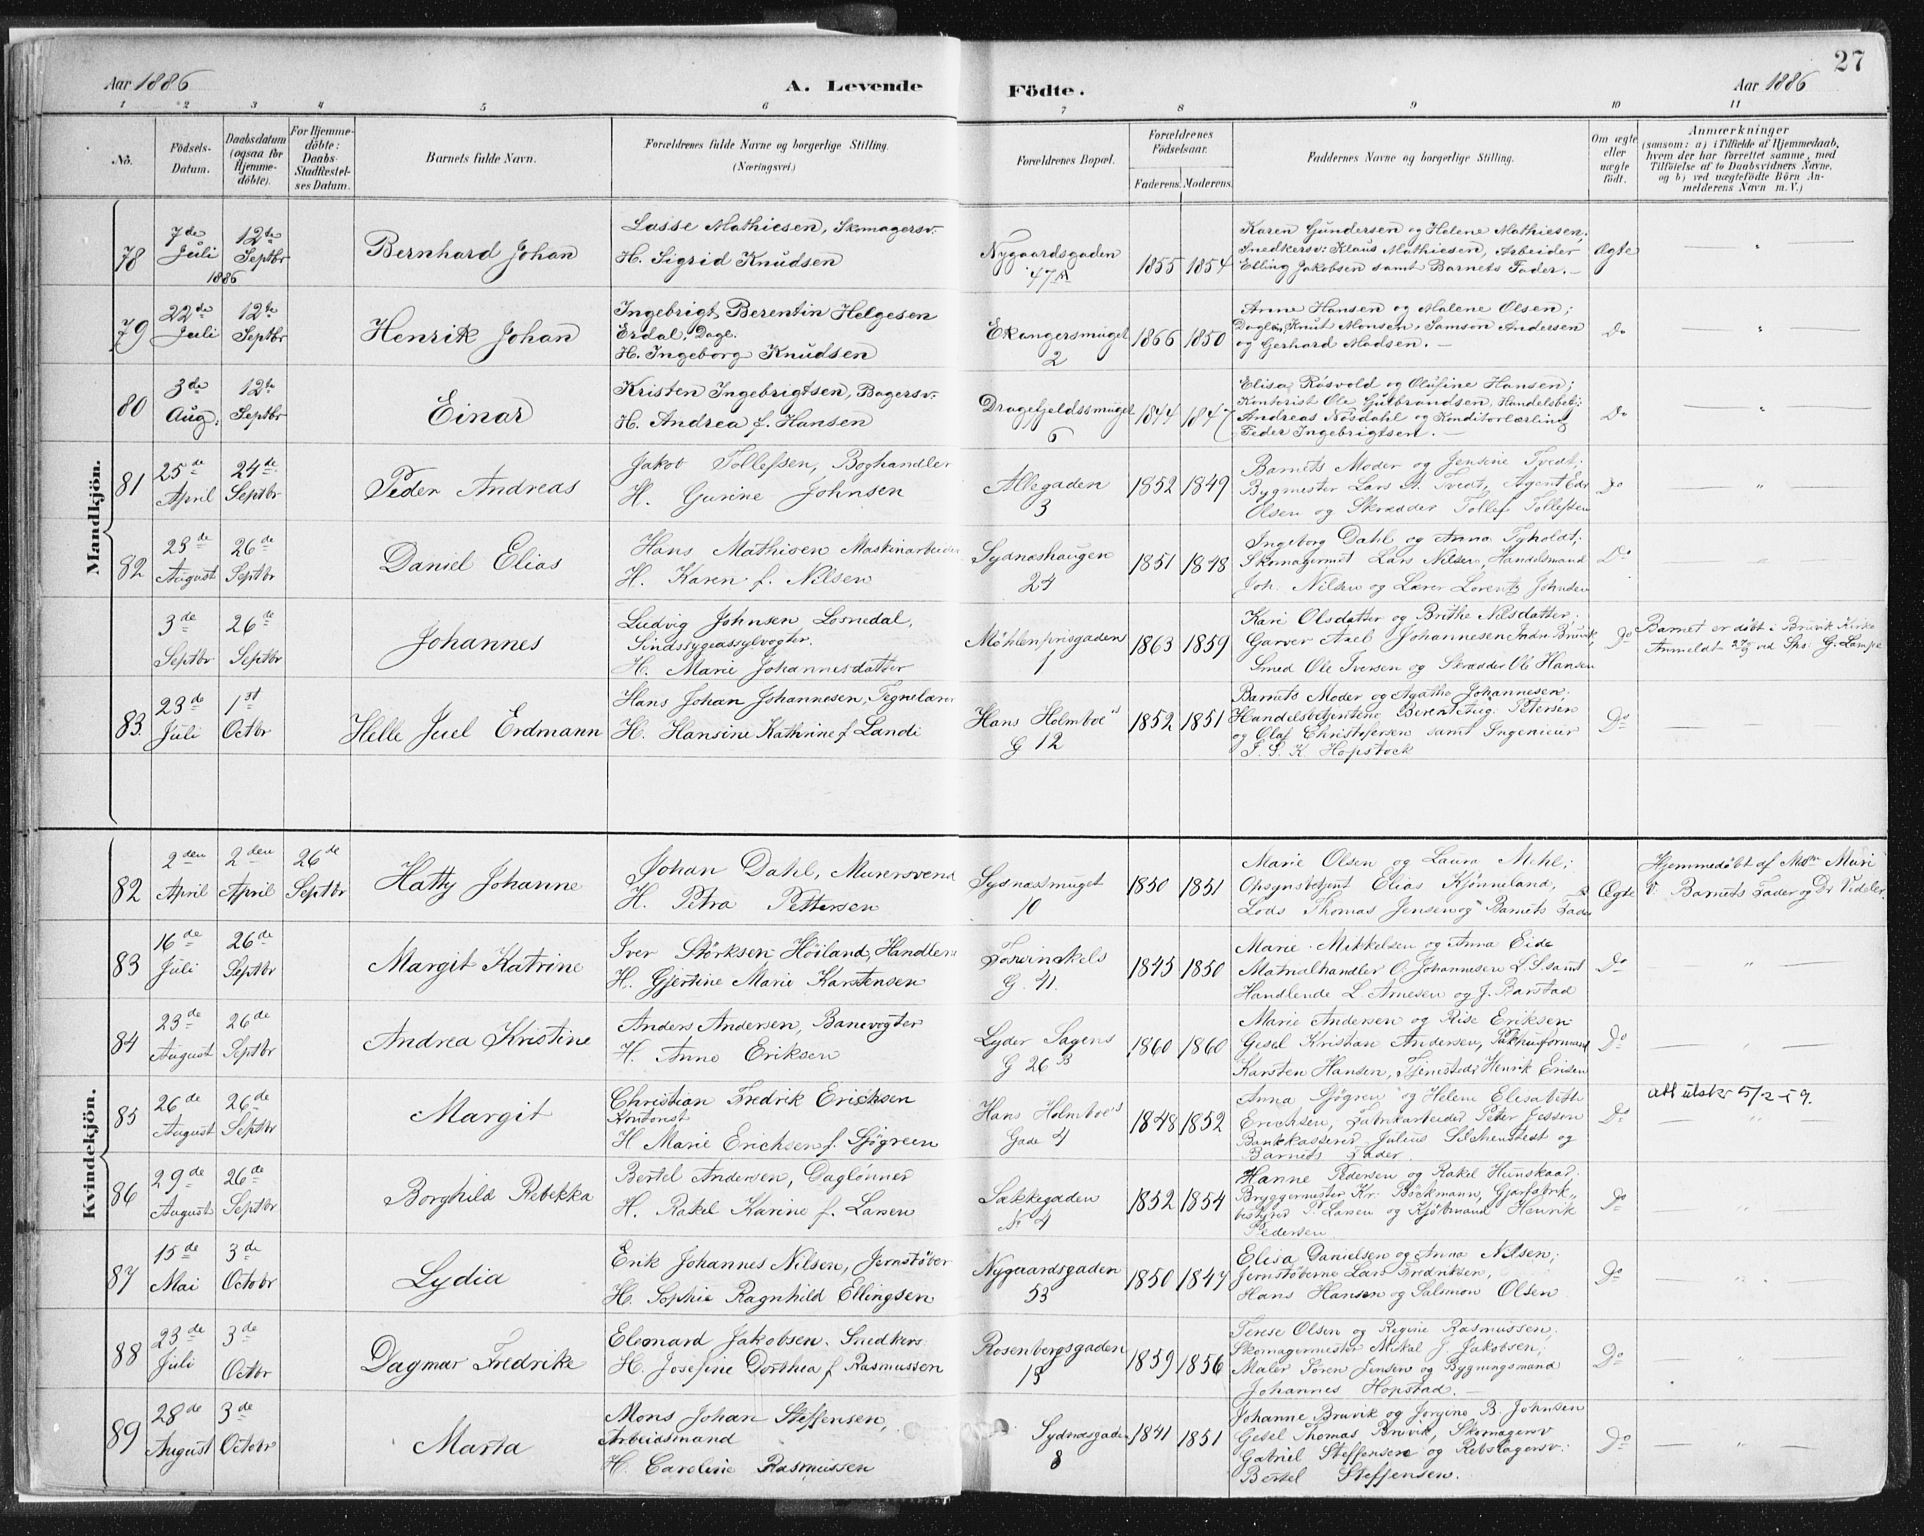 27
Aar 1886
A. Levende
Födte.
Aar 1886
1 2 3 4 5 6 7 8 9 10 11
No.
Födsels-
Datum.
Daabsdatum
(ogsaa for
Hjemme-
döbte).
For Hjemme-
döbte:
Daabs-
Stadfæstel-
ses Datum.
Barnets fulde Navn.
Forældrenes fulde Navne og borgerlige Stilling.
(Næringsvei.)
Forældrenes Bopæl.
Forældrenes
Födselsaar.
Faderens. Moderens.
Faddernes Navne og borgerlige Stilling.
Om ægte
eller
uægte
födt.
Anmærkninger
(saasom: a) i Tilfælde af Hjemmedaab,
hvem der har forrettet samme, med
Tilföielse af to Daabsvidners Navne,
og b) ved uægtefödte Börn An-
melderens Navn m. V.)
Mandkjön.
78
7de
Juli
1886
12te
Septbr
Bernhard Johan
Lasse Mathiesen, Skomagersv.
H. Sigrid Knudsen
Nygaardsgaden
47A
1855 1854
Karen Gundersen og Helene Mathiesen;
Snedkersv: Klaus Mathiesen, Arbeider
Elling Jakobsen samt Barnets Fader. —
Ægte
— " —
79
22de
Juli
12te
Septbr
Henrik Johan
Ingebrigt Berentin Helgesen
Erdal, Dagl.
H. Ingeborg Knudsen
Ekangersmuget
2
1866 1850
Anne Hansen og Malene Olsen;
Dagln, Knut Monsen, Samson Andersen
og Gerhard Madsen. —
Do
— " —
80
3de
Aug.
12te
Septbr
Einar
Kristen Ingebrigtsen, Bagersv.
H. Andrea f. Hansen
Dragefjeldssmuget
6
1844 1847
Elisa Røsvold og Olufine Hansen;
Kontorist Ole Gulbrandsen, Handelsbetj:
Andreas Nøsdahl og Konditorlærling
Peder Ingebrigtsen. —
Do
— " —
81
25de
April
24de
Septbr
Peder Andreas
Jakob Tollefsen, Boghandler
H. Gurine Johnsen
Allegaden
3
1852 1849
Barnets Moder og Jensine Tvedt;
Bygmester Lars A. Tvedt, Agent Edv
Olsen og Skrædder Tollef Tollefsen
Do
— " —
82
23de
August
26de
Septbr
Daniel Elias
Hans Mathisen Maskinarbeider
H. Karen f. Nilsen
Sydneshaugen
24
1851 1848
Ingeborg Dahl og Anna Tyholdt;
Skomagermst Lars Nilsen, Handelsmand
Joh. Nilsen og Lærer Lorentz Johnsen
Do
— " —
3de
Septbr
26de
Septbr
Johannes
Ludvig Johnsen Losnedal,
Sindssygeassylvogter.
H. Marie Johannesdatter
Möhlenprisgaden
1
1863 1859
Kari Olsdatter og Brithe Nilsdatter;
Garver Axel Johannesen Indre Bruvik,
Smed Ole Iversen og Skrædder Ole Hansen
Do
Barnet er døbt i Bruvik Kirke
Anmeldt 27/9 ved Sps: G. Lampe
83.
23de
Juli
1st
Octbr
Helle Juel Erdmann
Hans Johan Johannesen, Tegnelærer
H. Hansine Kathrine f Landi
Hans Holmboe's
G 12
1852 1851
Barnets Moder og Agathe Johannesen.
Handelsbetjentene Berent Aug. Petersen
og Olaf Christofersen samt Ingenieur
J. S. K. Hopstock
Do
—
Kvindekjön.
82
2den
April
2den
April
26de
Septbr
Hatty Johanne
Johan Dahl, Murersvend
H. Petra Pettersen
Sydnesmuget
10
1850 1851
Marie Olsen og Laura Mehl;
Opsynsbetjent Elias Kjønneland,
Lods Thomas Jensen og Barnets Fader
Ægte
Hjemmedøbt af Mdm Muri
V: Barnets Fader og Dr Videler.
83
16de
Juli
26de
Septbr
Margit Katrine
Iver Størksen Høiland, Handlende
H. Gjertine Marie Karstensen
Fosvinckels
G. 41.
1845 1850
Marie Mikkelsen og Anna Eide
Matrialhandler O. Johannesen L. S. samt
Handlende L. Arnesen og J. Barstad
Do
— " —
84
23de
August
26de
Septbr
Andrea Kristine
Anders Andersen, Banevogter
H. Anne Eriksen
Lyder Sagens
G 26 B
1860 1860
Marie Andersen og Rise Eriksen.
Gesel Kristian Andersen, Pakhusformand
Karsten Hansen, Tjenestedr Henrik Eriksen
Do
— " —
85
26de
August
26de
Septbr
Margit
Christian Fredrik Erichsen
Kontorist
H Marie Erichsen f. Sjøgreen
Hans Holmboe's
Gade 4
1848 1852
Anna Sjøgren og Helene Elisabeth
Erichsen, Fabrikarbeider Peter Jessen
Bankkasserer Julius
og
Barnets Fader.
Do
att utskr 5/2 59.
— " —
86
29de
August
26de
Septbr
Borghild Rebekka
Bertel Andersen, Daglønner
H. Rakel Karine f. Larsen
Sækkegaden
No 4
1852 1854
Hanne Pedersen og Rakel Hunskaar.
Bryggermester Kr. Bøckmann, Gjærfabrik-
bestyrer P. Larsen og Kjøbmand Henrik
Pedersen
Do
— " —
87
15de
Mai
3de
Octobr
Lydia
Erik Johannes Nilsen, Jernstøber
H. Sophie Ragnhild Ellingsen
Nygaardsgaden
53
1850 1847
Elisa Danielsen og Anna Nilsen;
Jernstøberne Lars Fredriksen,
Hans Hansen og Salomon Olsen
Do
— " —
88
23de
Juli
3de
Octbr
Dagmar Fredrike
Eleonard Jakobsen. Snedkers:
H. Josefine Dorthea f Rasmussen
Rosenbergsgaden
13
1859 1856
Terese Olsen og Regine Rasmussen,
Skomagermester Mikal J. Jakobsen,
Maler Søren Jensen og Bygningsmand
Johannes Hopstad. —
Do
"
89
28de
August
3de
Octobr
Marta
Mons Johan Steffensen,
Arbeidsmand
H. Caroline Rasmussen
Sydnesgaden
8
1841 1851
Johanne Bruvik og Jorgine B. Johnsen
Gesel Thomas Bruvik, Skomagersv
Gabriel Steffensen og Rebslagersv:
Bertel Steffensen.
Do
— " —